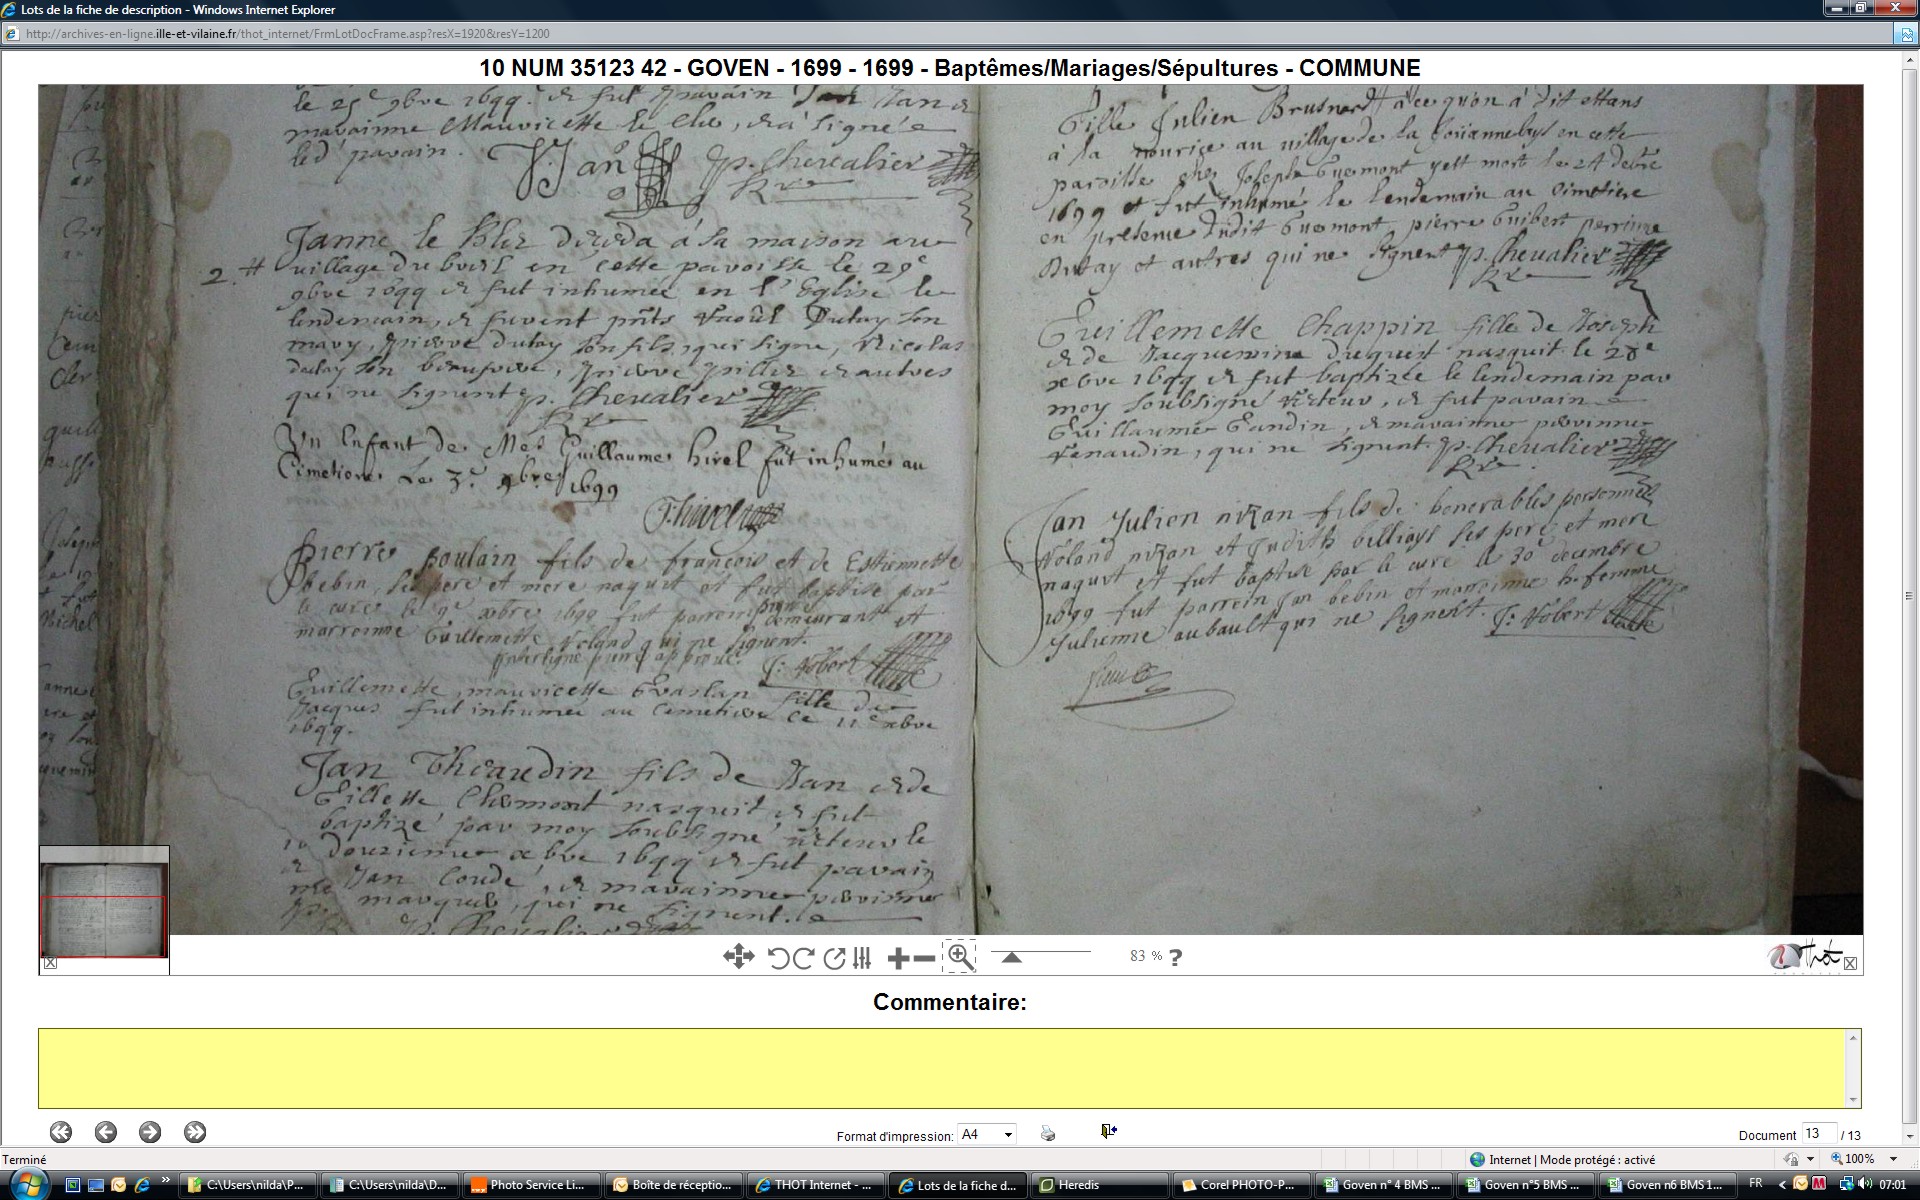 Lots de la fiche de description - Windows Internet Explorer
http://archives-en-ligne.ille-et-vilaine.fr/thot_internet/FrmLotDocFrame.asp?resX=1920&resY=1200
10 NUM 35123 42 - GOVEN - 1699 - 1699 - Baptêmes/Mariages/Sépultures - COMMUNE
le 25e 9bre 1699 & fut parain Jan Jan &
marainne Mauricette le Cho, & a signé
led' parain.
J Jan p. Chevalier
Rr
Janne le Bler décéda a sa maison au
2. # village du bouil en cette paroisse le 29e
9bre 1699 & fut inhumée en l'Eglise le
lendemain, & furent pnts Raoul Dutay son
mary, pierre dutay son fils, qui signe, Nicolas
dutay son beaufrere, pierre piller & autres
qui ne signent p. Chevalier
Rr
Un Enfant de Guillaume hirel fut inhumé au
Cimetiere Le 3e 1699
pierre poulain fils de françois et de Estiennette
bebin, ses pere et mere naquit et fut baptise par
le curé le xbre 1699 fut parrein pierre demeurant et
marreinne Guillemette Roland qui ne signent.
interligne pierre approuvé. J: Robert
Guillemette mauricette fille de
Jacques fut inhumée au Cemetiere le 11e xbre
1699.
Jan Theaudin fils de Jan & de
Gillette Chemont nasquit & fut
baptizé par moy soubsigné recteur le
douzieme xbre 1699 & fut parain
Jan Coudé, & marainne perrinne
marquer, qui ne signent.
p. Chevalier
fille Julien Brusnard a ce qu'on a dit estans
a la nourice au village de la en cette
paroisse ches Joseph Guemont y est mort le 24 decbre
1699 et fut inhumé le lendemain au Cimetiere
en presence dudit Guemont pierre Guibert perrinne
Dutay et autres qui ne signent p. Chevalier
Rr
Guillemette Chappin fille de Joseph
& de Jacquemine nasquit le 28e
xbre 1699 & fut baptizée le lendemain par
moy soubsigné recteur, & fut parain
Guillaume Gandin, & marainne perrinne
Renaudin, qui ne signent. p. Chevalier
Rr
Jan Julien nizan fils de honorables personnes
Roland nizan et Judith billiays ses pere et mere
naquit et fut baptise par le curé le 30e decembre
1699 fut parrein Jan bebin et marreinne h. femme
Julienne aubault qui ne signent. J: Robert
83 % ?
Thot
Commentaire:
Format d'impression: A4
Document 13 / 13
Terminé
Internet | Mode protégé : activé
100%
C:\Users\nilda\P...
C:\Users\nilda\D...
Photo Service Li...
Boîte de réceptio...
THOT Internet - ...
Lots de la fiche d...
Heredis
Corel PHOTO-P...
Goven n° 4 BMS ...
Goven n°5 BMS ...
Goven n6 BMS 1...
FR
07:01